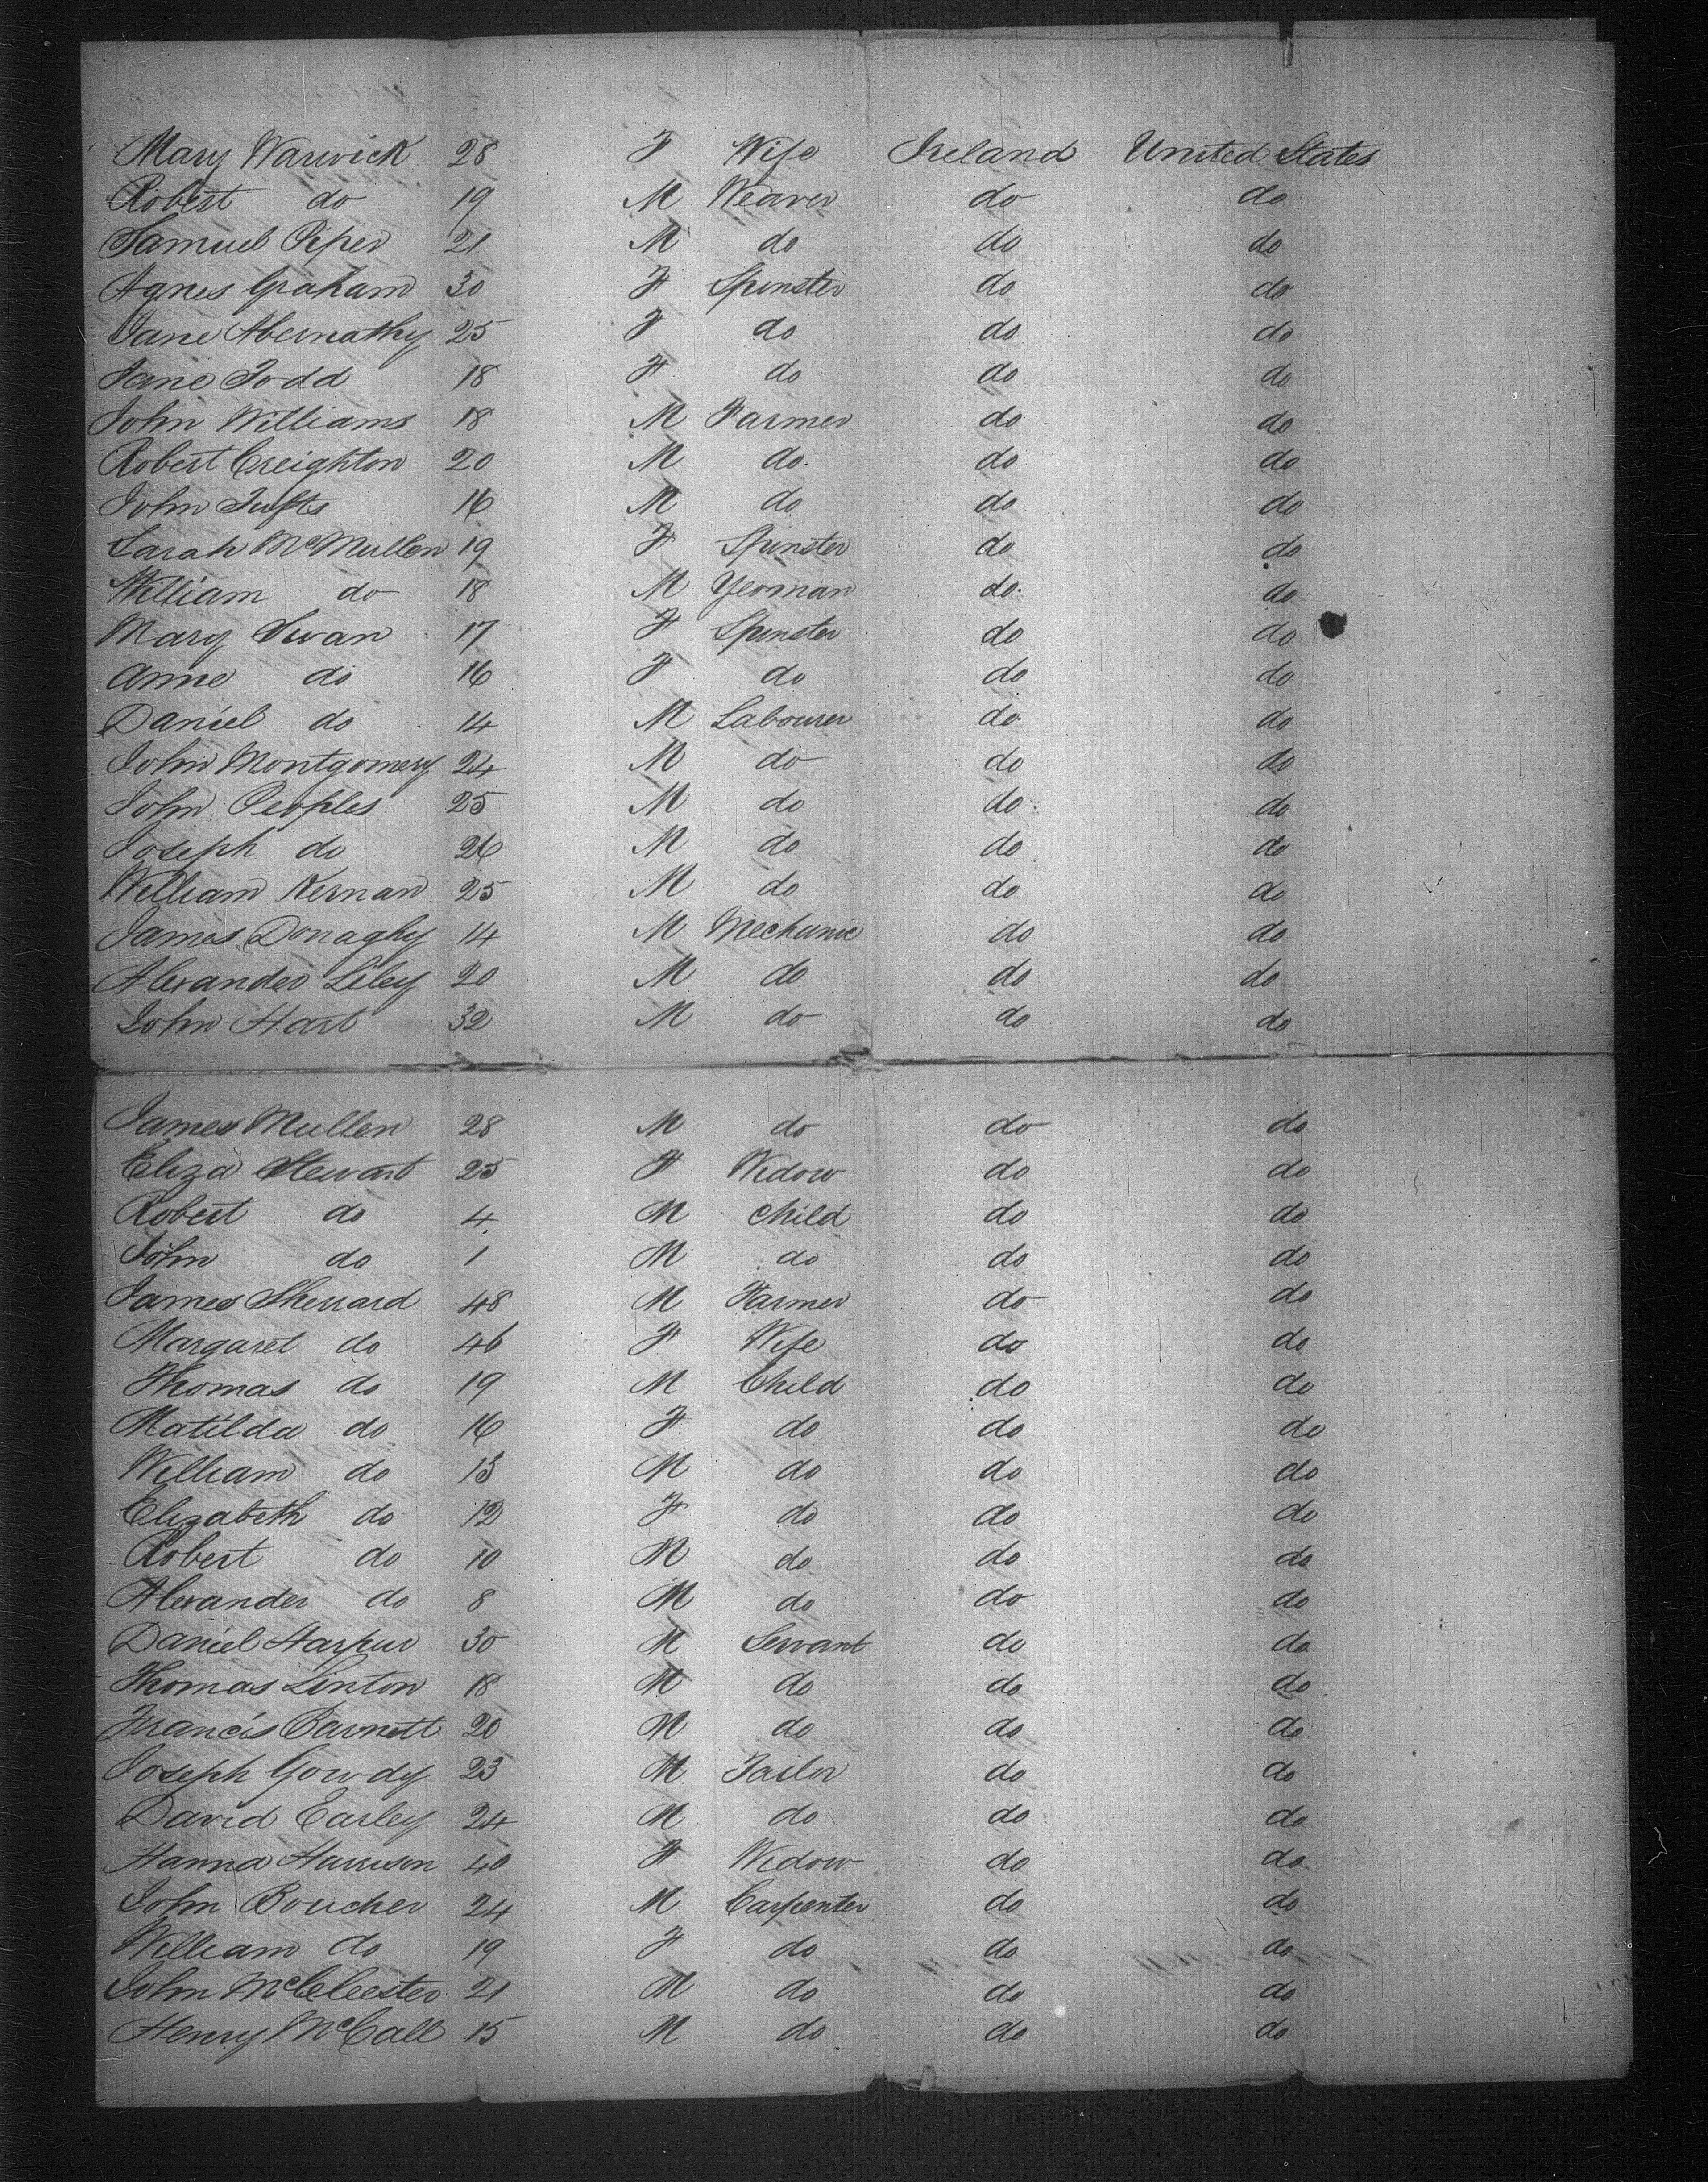 Mary Warwick 28 F Wife Ireland United States
Robert do 19 M Weaver do do
Samuel Piper 21 M do do do
Agnes Graham 30 F Spinster do do
Jane Abernathy 25 F do do do
Jane Todd 18 F do do do
John Williams 18 M Farmer do do
Robert Creighton 20 M do do do
John Tufts 16 M do do do
Sarah McMullen 19 F Spinster do do
William do 18 M Yeoman do do
Mary Swan 17 F Spinster do do
Anne do 16 F do do do
Daniel do 14 M Labourer do do
John Montgomery 24 M do do do
John Peoples 25 M do do do
Joseph do 26 M do do do
William Kernan 25 M do do do
James Donaghy 14 M Mechanic do do
Alexander Liley 20 M do do do
John Hart 32 M do do do
James Mullen 28 M do do do
Eliza Stewart 25 F Widow do do
Robert do 4 M Child do do
John do 1 M do do do
James Sherrard 48 M Farmer do do
Margaret do 46 F Wife do do
Thomas do 19 M Child do do
Matilda do 16 F do do do
William do 13 M do do do
Elizabeth do 12 F do do do
Robert do 10 M do do do
Alexander do 8 M do do do
Daniel Harpur 30 M Servant do do
Thomas Linton 18 M do do do
Francis Barnett 20 M do do do
Joseph Gowdy 23 M Tailor do do
David Earley 24 M do do do
Hanna Harrison 40 F Widow do do
John Boucher 24 M Carpenter do do
William do 19 F do do do
John McCleester 21 M do do do
Henry McCall 15 M do do do